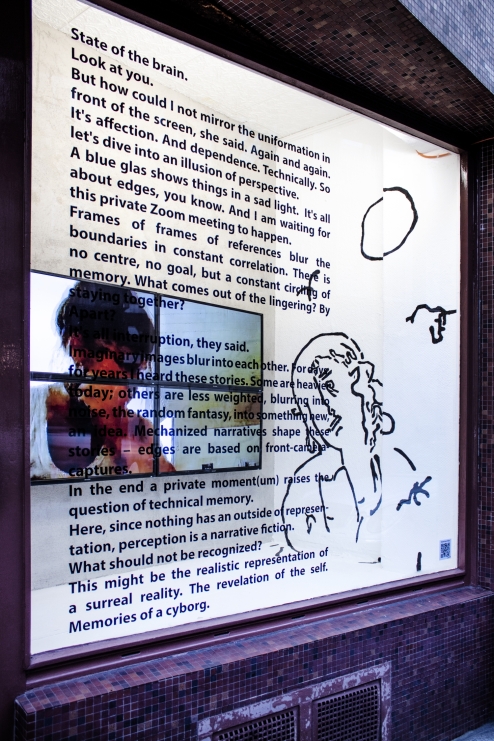 State of the brain.
Look at you.
But how could I not mirror the uniformation in
front of the screen, she said. Again and again.
It's affection. And dependence. Technically. So
let's dive into an illusion of perspective.
A blue glas shows things in a sad light. It's all
about edges, you know. And I am waiting for
this private Zoom meeting to happen.
Frames of frames of references blur the
boundaries in constant correlation. There is
no centre, no goal, but a constant circling of
memory. What comes out of the lingering? By
staying together?
Apart?
It's all interruption, they said.
Imaginary images blur into each other. For
for years I heard these stories. Some are heavier
today; others are less weighted, blurring into
noise, the random fantasy, into something new,
an idea. Mechanized narratives shape these
stories – edges are based on front-camera-
captures.
In the end a private moment(um) raises the
question of technical memory.
Here, since nothing has an outside of represen-
tation, perception is a narrative fiction.
What should not be recognized?
This might be the realistic representation of
a surreal reality. The revelation of the self.
Memories of a cyborg.